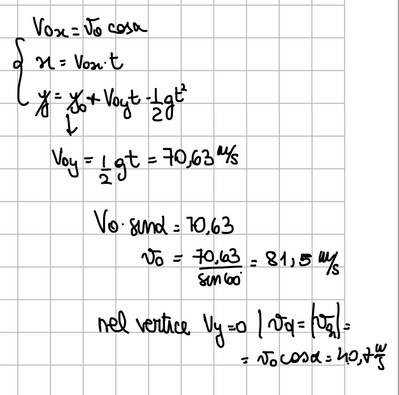 V₀x = v₀ cosα
x = V₀x · t
y = y₀ + V₀y t - 1/2 g t²
V₀y = 1/2 g t = 70,63 m/s
V₀ · sinα = 70,63
v₀ = 70,63 / sin60 = 81,5 m/s
nel vertice Vy = 0 | =
= v₀ cosα = 40,7 m/s